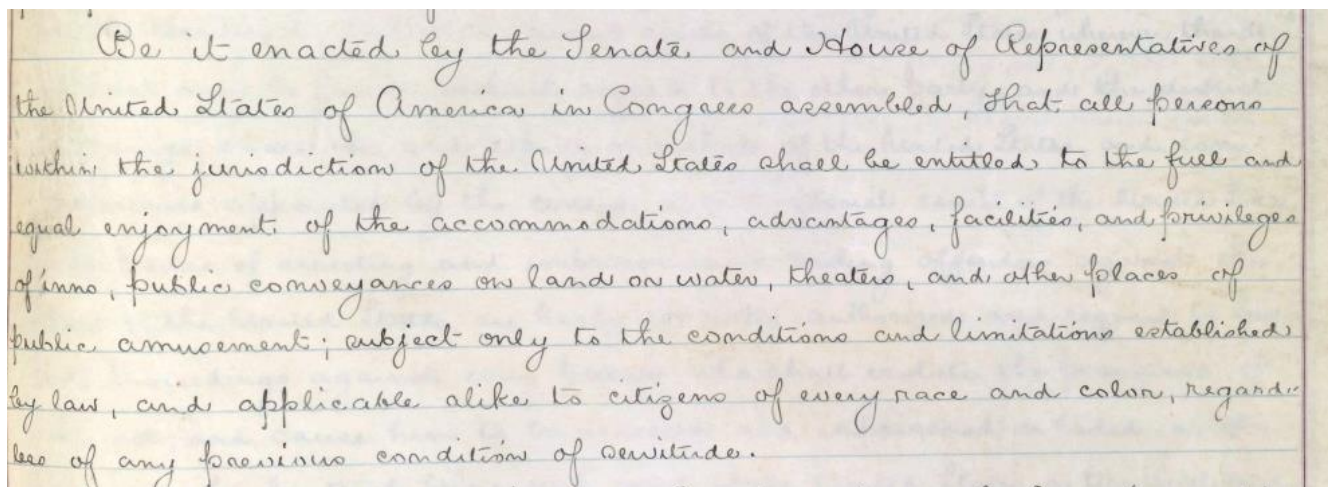 Be it enacted by the Senate and House of Representatives of
the United States of America in Congress assembled, That all persons
within the jurisdiction of the United States shall be entitled to the full and
equal enjoyment of the accommodations, advantages, facilities, and privileges
of inns, public conveyances on land or water, theaters, and other places of
public amusement; subject only to the conditions and limitations established
by law, and applicable alike to citizens of every race and color, regard-
less of any previous condition of servitude.